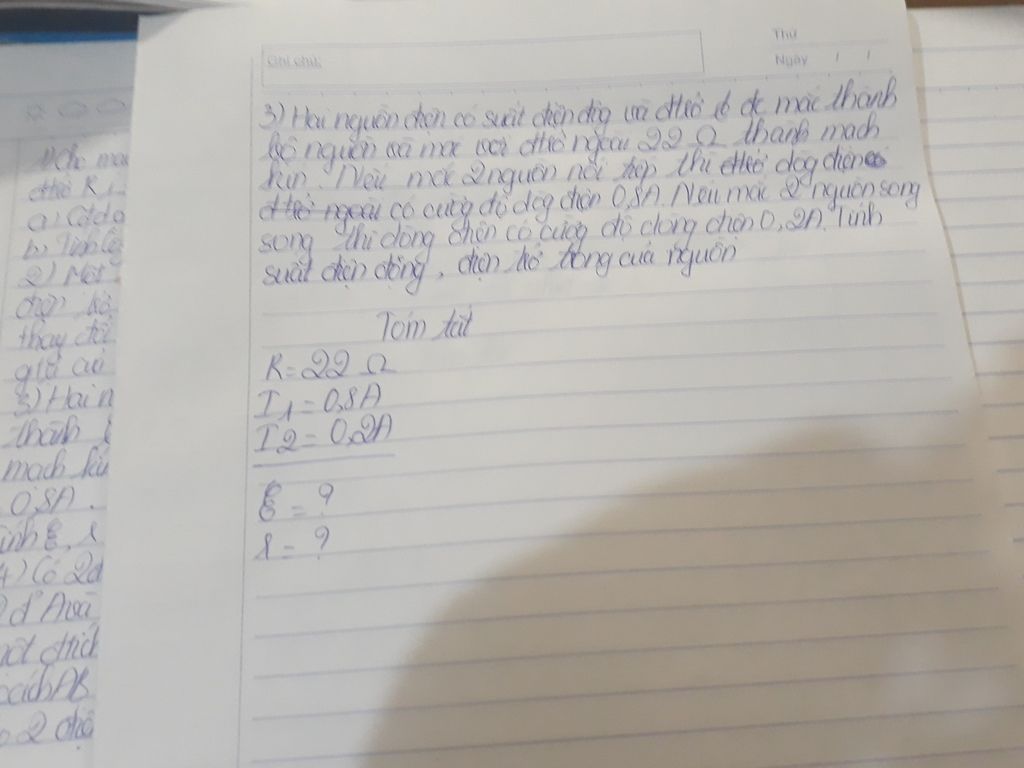 Thứ
Ghi chú:
Ngày / /
3) Hai nguồn điện có suất điện động và đtrở đc mắc thành
bộ nguồn và mắc với đtrở ngoài 22 Ω thành mạch
kín. Nếu mắc 2 nguồn nối tiếp thì dòg điện
có cườg độ dòg điện 0,8A. Nếu mắc 2 nguồn song
song thì dòng điện có cườg độ dòng điện 0,2A. Tính
suất điện động, điện trở trong của nguồn
Tóm tắt
R = 22 Ω
I1 = 0,8A
I2 = 0,2A
ξ = ?
r = ?
1) Cho mạ
đtrở R1
a)
b) Tính
2) Một
điện trở
thay đổi
giữ
3) Hai n
thành
mạch kí
0,8A.
ính ξ, r
4) Có 2 đ
A và
một
cách AB
2